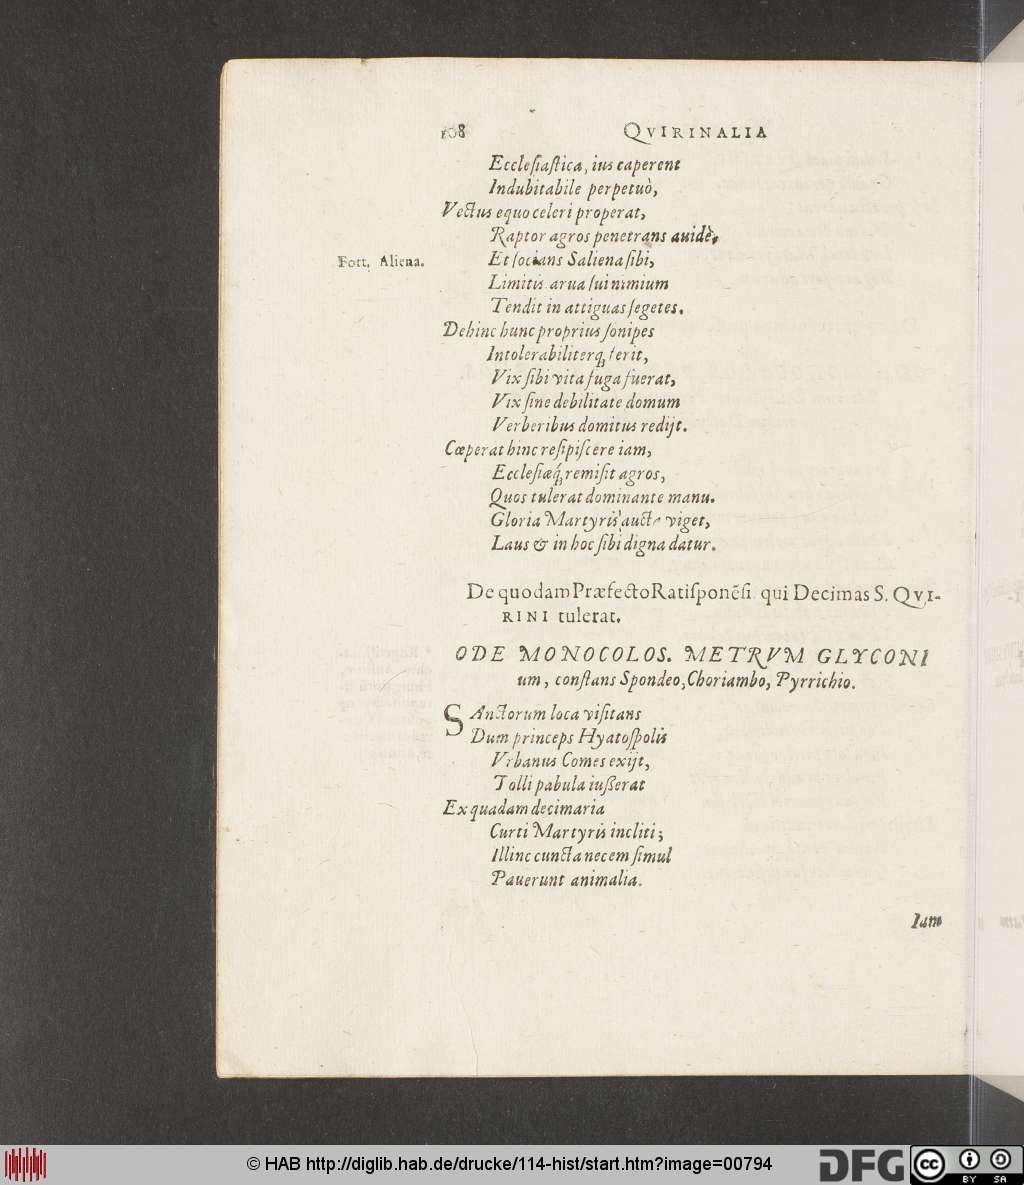 108 QVIRINALIA
Ecclesiastica, ius caperent
Indubitabile perpetuò,
Vectus equo celeri properat,
Raptor agros penetrans auidè,
Fort. Aliena. Et socians Saliena sibi,
Limitis arua sui nimium
Tendit in attiguas segetes.
Dehinc hunc proprius sonipes
Intolerabiliterq́ ferit,
Vix sibi vita fuga fuerat,
Vix sine debilitate domum
Verberibus domitus redijt.
Cœperat hinc resipiscere iam,
Ecclesiæq́ remisit agros,
Quos tulerat dominante manu.
Gloria Martyris aucta viget,
Laus & in hoc sibi digna datur.
De quodam Præfecto Ratisponẽsi qui Decimas S. QVI-
RINI tulerat.
ODE MONOCOLOS. METRVM GLYCONI
um, constans Spondeo, Choriambo, Pyrrichio.
SAnctorum loca visitans
Dum princeps Hyatospolis
Vrbanus Comes exijt,
Tolli pabula iußerat
Ex quadam decimaria
Curti Martyris incliti;
Illinc cuncta necem simul
Pauerunt animalia.
Iam
© HAB http://diglib.hab.de/drucke/114-hist/start.htm?image=00794
DFG
cc BY SA